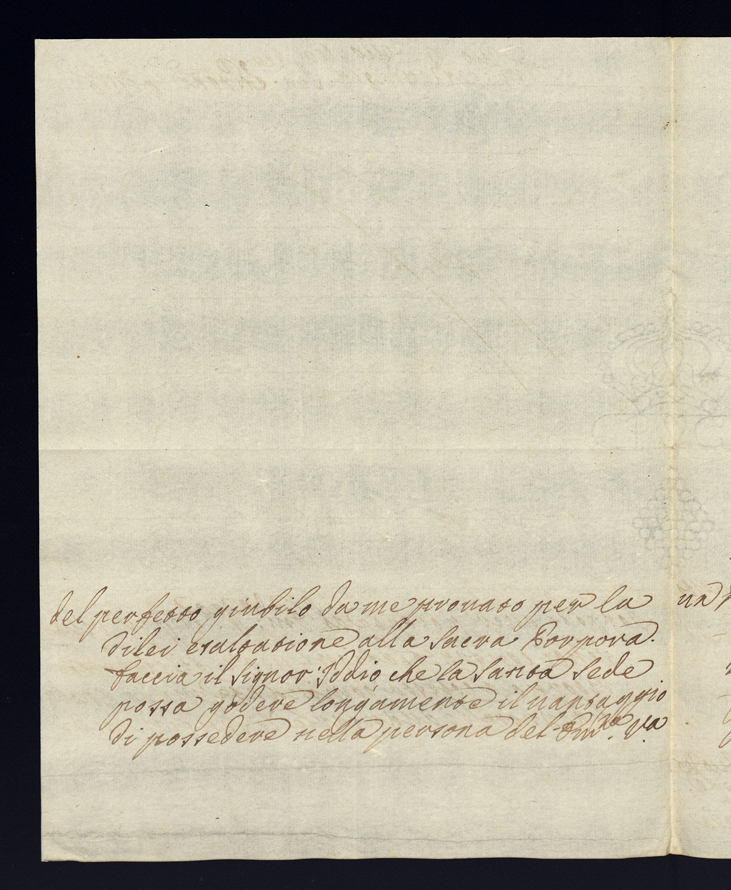 del perfetto giubilo da me provato per la
di lei esaltatione alla sacra Porpora.
faccia il signor' Iddio che la santa sede
possa godere longamente il vantaggio
di possedere nella persona del Em.za V.ra
un